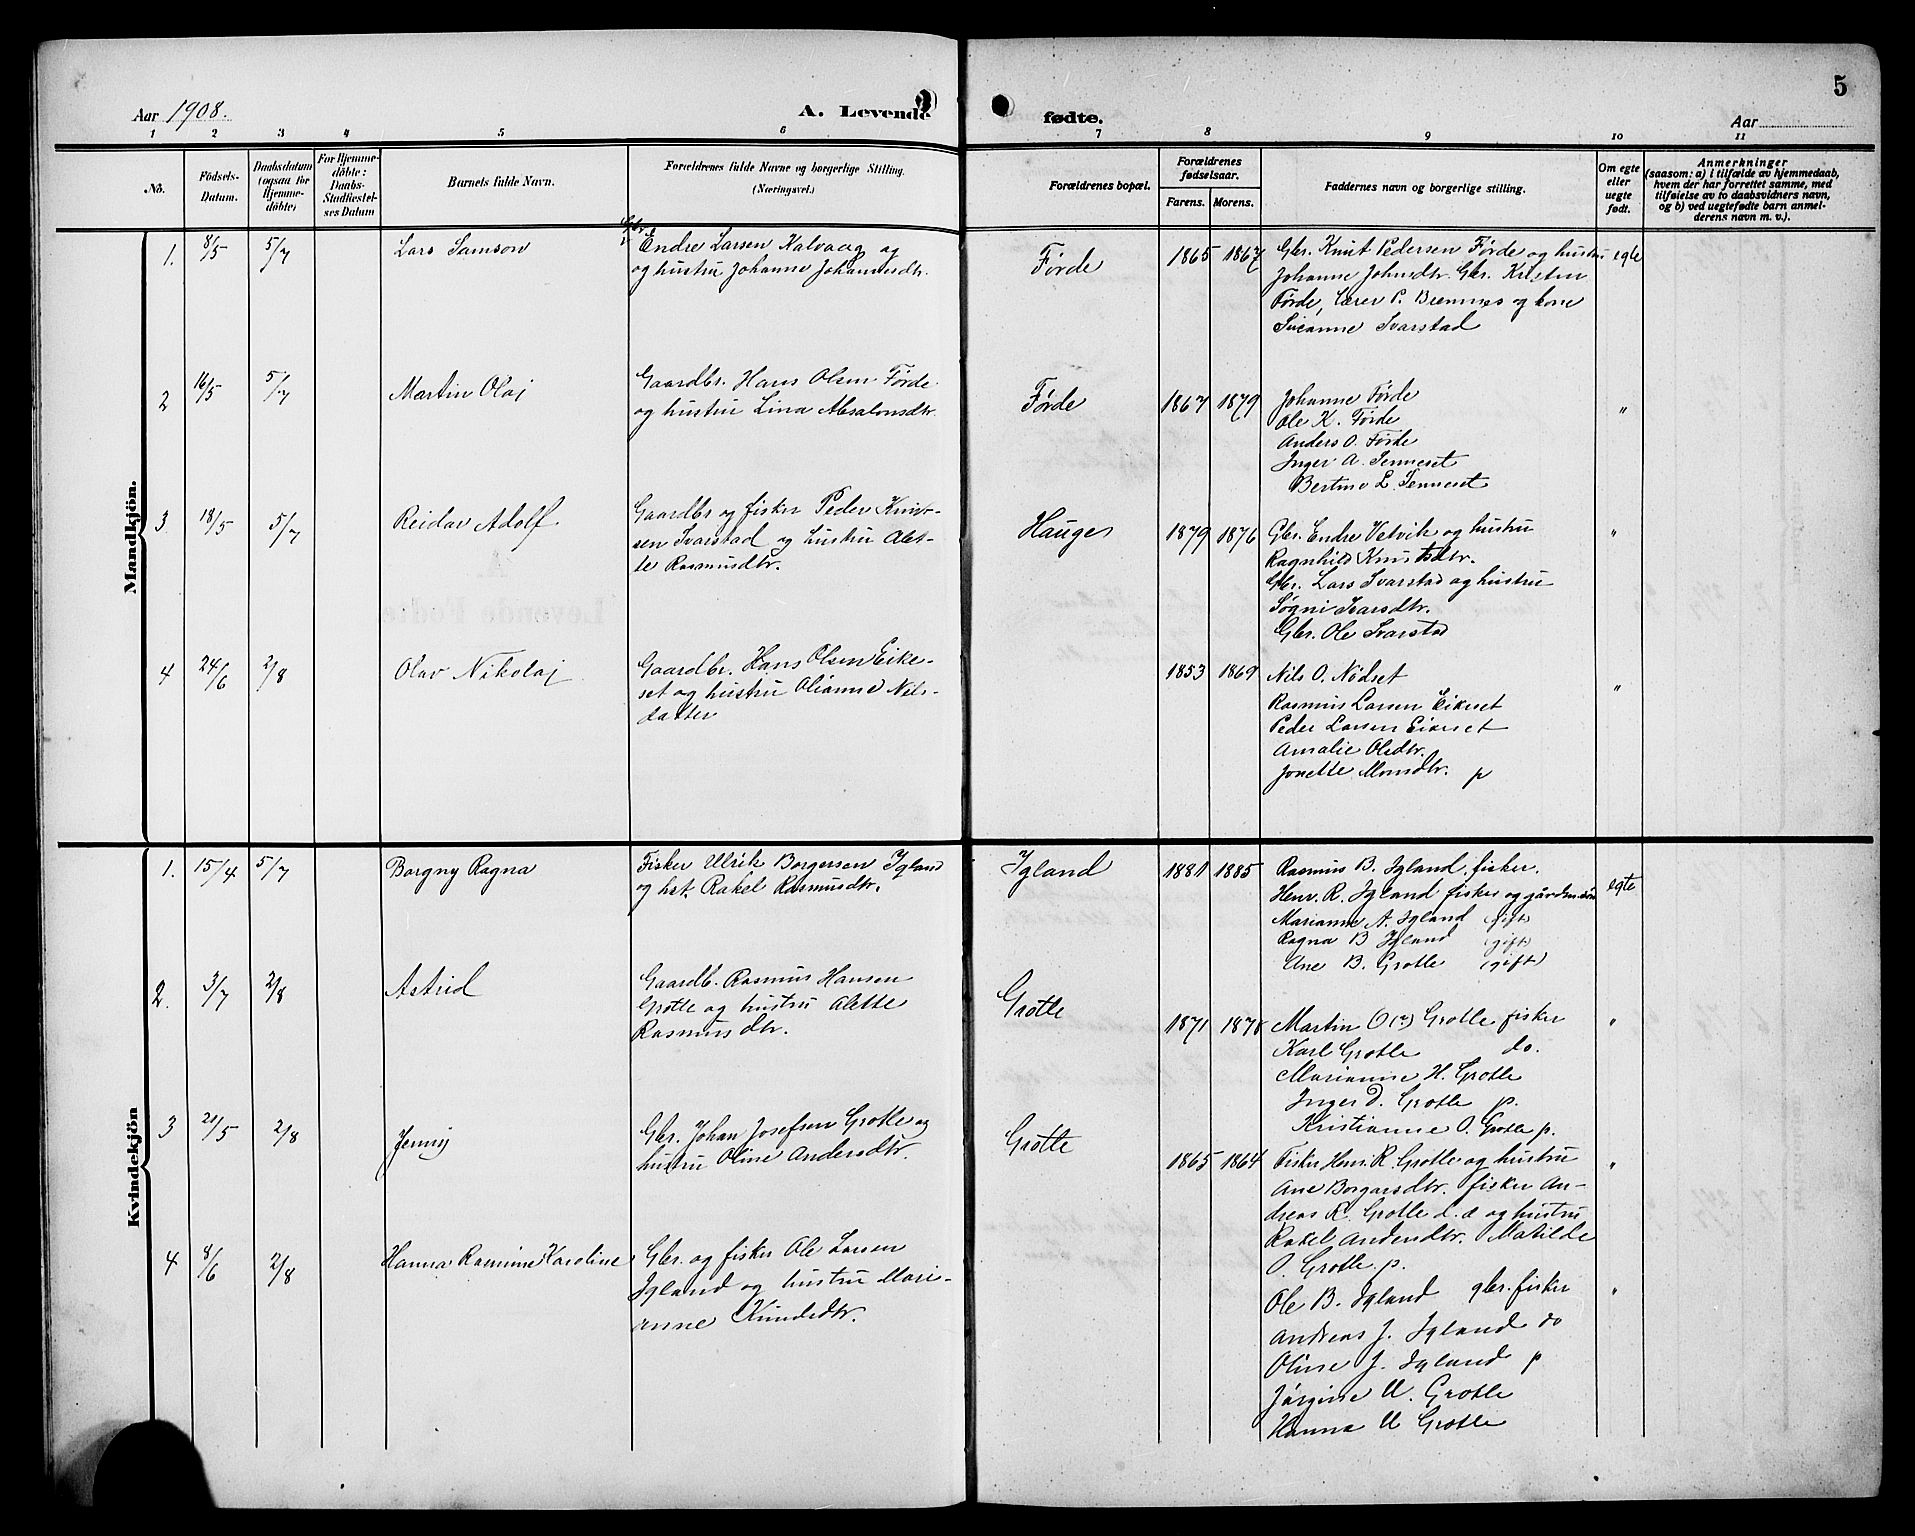 5
Aar 1908.
A. Levende
fødte.
Aar
1 2 3 4 5 6 7 8 9 10 11
No.
Födsels-
Datum.
Daabsdatum
(ogsaa for
Hjemme-
döbte)
For Hjemme-
döbte:
Daabs-
Stadfæstel-
ses Datum
Barnets fulde Navn.
Forældrenes fulde Navne og borgerlige Stilling.
(Næringsvei.)
Forældrenes bopæl.
Forældrenes
fødselsaar.
Farens. Morens.
Faddernes navn og borgerlige stilling.
Om egte
eller
uegte
født.
Anmerkninger
(saasom: a) i tilfælde av hjemmedaab,
hvem der har forrettet samme, med
tilføielse av to daabsvidners navn,
og b) ved uegtefødte barn anmel-
derens navn m. v.).
Mandkjön.
1. 8/5 5/7 Lars Samson
Gbr.
Endre Larsen Kalvaag og
og hustru Johanne Johannesdtr.
Førde 1865 1867
Gbr. Knut Pedersen Førde og hustru
Johanne Johnsdtr. Gbr. Kristen
Førde, Lærer P. Bremnes og kone
Susanne Svarstad
egte
2 16/5 5/7 Martin Olai
Gaardbr. Hans Olsen Førde
og hustru Lina Absalonsdtr.
Førde 1867 1879
Johanne Førde
Ole K. Førde
Anders O. Førde
Inger A. Senneset
Bertine L. Senneset
"
3 18/5 5/7 Reidar Adolf
Gaardbr og fisker Peder Knut-
sen Svarstad og hustru Alet-
te Rasmusdtr.
Hauge 1879 1876
Gbr. Endre Vetvik og hustru
Ragnhild Knutsdtr.
Gbr. Lars Svarstad og hustru
Søgni Ivarsdtr.
Gbr. Ole Svarstad
"
4 24/6 2/8 Olav Nikolai
Gaardbr. Hans Olsen Eike-
set og hustru Olianne Nils-
datter
1853 1869
Nils O. Nødset
Rasmus Larsen Eikeset
Peder Larsen Eikeset
Amalie Olsdtr.
Jonette Monsdtr. p
"
Kvindekjön
1. 15/4 5/7 Borgny Ragna
Fisker Ulrik Borgersen Igland
og hst. Rakel Rasmusdtr.
Igland 1881 1885
Rasmus B. Igland fisker.
Henr. R. Igland fisker og gårdm.søn
Marianne A. Igland (gift)
Ragna B Igland (gift)
Ane B. Grotle (gift)
egte
2. 3/7 2/8 Astrid
Gaardb. Rasmus Hansen
Grotle og hustru Alette
Rasmusdtr.
Grotle 1871 1878
Martin O(?) Grotle fisker
Karl Grotle do.
Marianne H. Grotle
Inger D. Grotle p.
Kristianne O. Grotle p.
"
3 20/5 2/8 Jenny
Gbr. Johan Josefsen Grotle og
hustru Oline Andersdtr.
Grotle 1865 1864
Fisker Henr. R. Grotle og hustru
Ane Borgersdtr. fisker An-
dreas R. Grotle d. æ og hustru
Rakel Andersdtr. Matilde
O. Grotle p.
"
4 8/6 2/8 Hanna Rasmine Karoline
Gbr. og fisker Ole Larsen
Igland og hustru Mari-
anne Knudsdtr.
Ole B. Igland gbr. fisker
Andreas J. Igland do
Oline J. Igland p
Jørgine U. Grotle
Hanna U Grotle
"